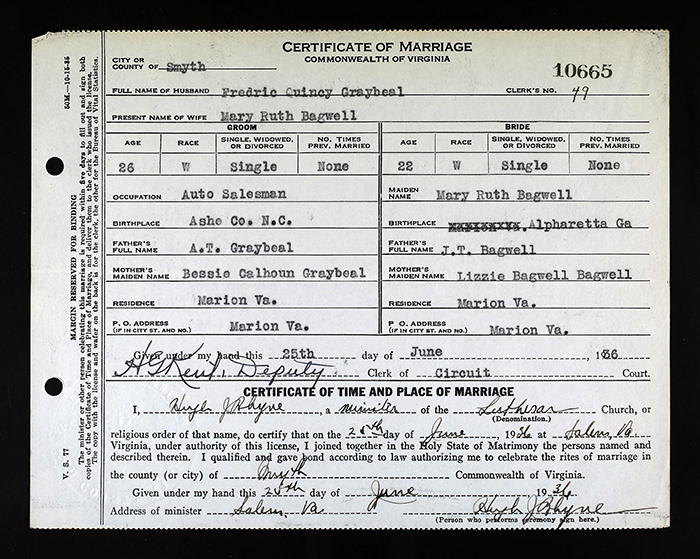 CERTIFICATE OF MARRIAGE
COMMONWEALTH OF VIRGINIA
CITY OR
COUNTY OF Smyth
10665
FULL NAME OF HUSBAND Fredric Quincy Graybeal CLERK'S NO. 49
PRESENT NAME OF WIFE Mary Ruth Bagwell
GROOM BRIDE
AGE RACE SINGLE, WIDOWED, OR DIVORCED NO. TIMES PREV. MARRIED AGE RACE SINGLE, WIDOWED, OR DIVORCED NO. TIMES PREV. MARRIED
26 W Single None 22 W Single None
OCCUPATION Auto Salesman MAIDEN NAME Mary Ruth Bagwell
BIRTHPLACE Ashe Co. N.C. BIRTHPLACE Alpharetta Ga
FATHER'S FULL NAME A.T. Graybeal FATHER'S FULL NAME J.T. Bagwell
MOTHER'S MAIDEN NAME Bessie Calhoun Graybeal MOTHER'S MAIDEN NAME Lizzie Bagwell Bagwell
RESIDENCE Marion Va. RESIDENCE Marion Va.
P. O. ADDRESS (IF IN CITY ST. AND NO.) Marion Va. P. O. ADDRESS (IF IN CITY ST. AND NO.) Marion Va.
Given under my hand this 25th day of June 1936
Deputy Clerk of Circuit Court.
CERTIFICATE OF TIME AND PLACE OF MARRIAGE
I, Hugh J Rhyne, a minister of the Lutheran Church, or
(Denomination.)
religious order of that name, do certify that on the 25th day of June, 1936 at Salem, Va.
Virginia, under authority of this license, I joined together in the Holy State of Matrimony the persons named and
described therein. I qualified and gave bond according to law authorizing me to celebrate the rites of marriage in
the county (or city) of Smyth Commonwealth of Virginia.
Given under my hand this 25th day of June 1936
Address of minister Salem Va Hugh J Rhyne
(Person who performs ceremony sign here.)
V. S. 77
MARGIN RESERVED FOR BINDING
50M.—10-15-35
The minister or other person celebrating this marriage is required within five days to fill out and sign both
copies of the Certificate of Time and Place of Marriage, and deliver them to the clerk who issued the license.
The copy with the license and wafer on the back is for the clerk, the other for the Bureau of Vital Statistics.